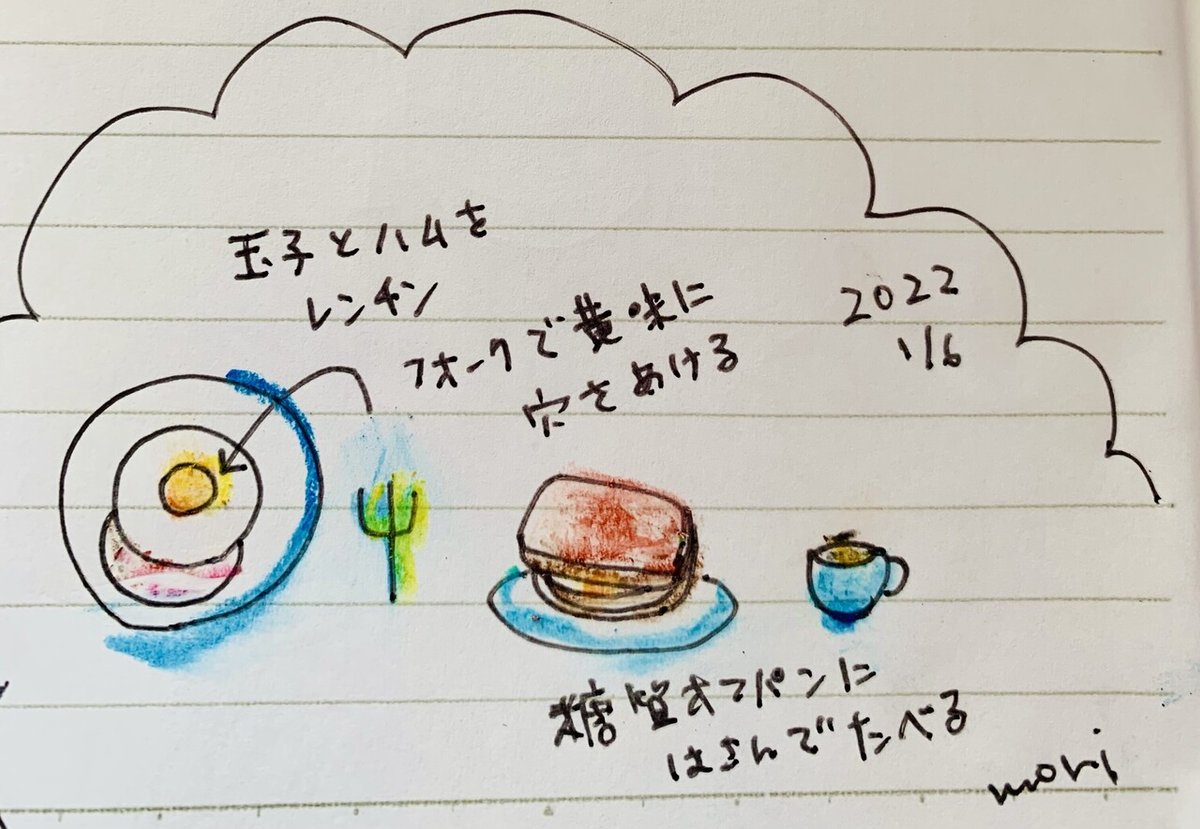 玉子とハムを
レンチン
フォークで黄味に
穴をあける
2022
1/6
糖質オフパンに
はさんでたべる
mori